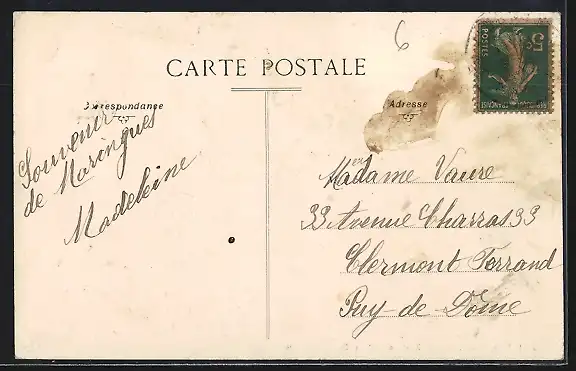 6
CARTE POSTALE
Correspondance
Adresse
POSTES
5c
Souvenir
de Maringues
Madeleine
Madame Vaure
33 Avenue Charras 33
Clermont Ferrand
Puy-de Dôme